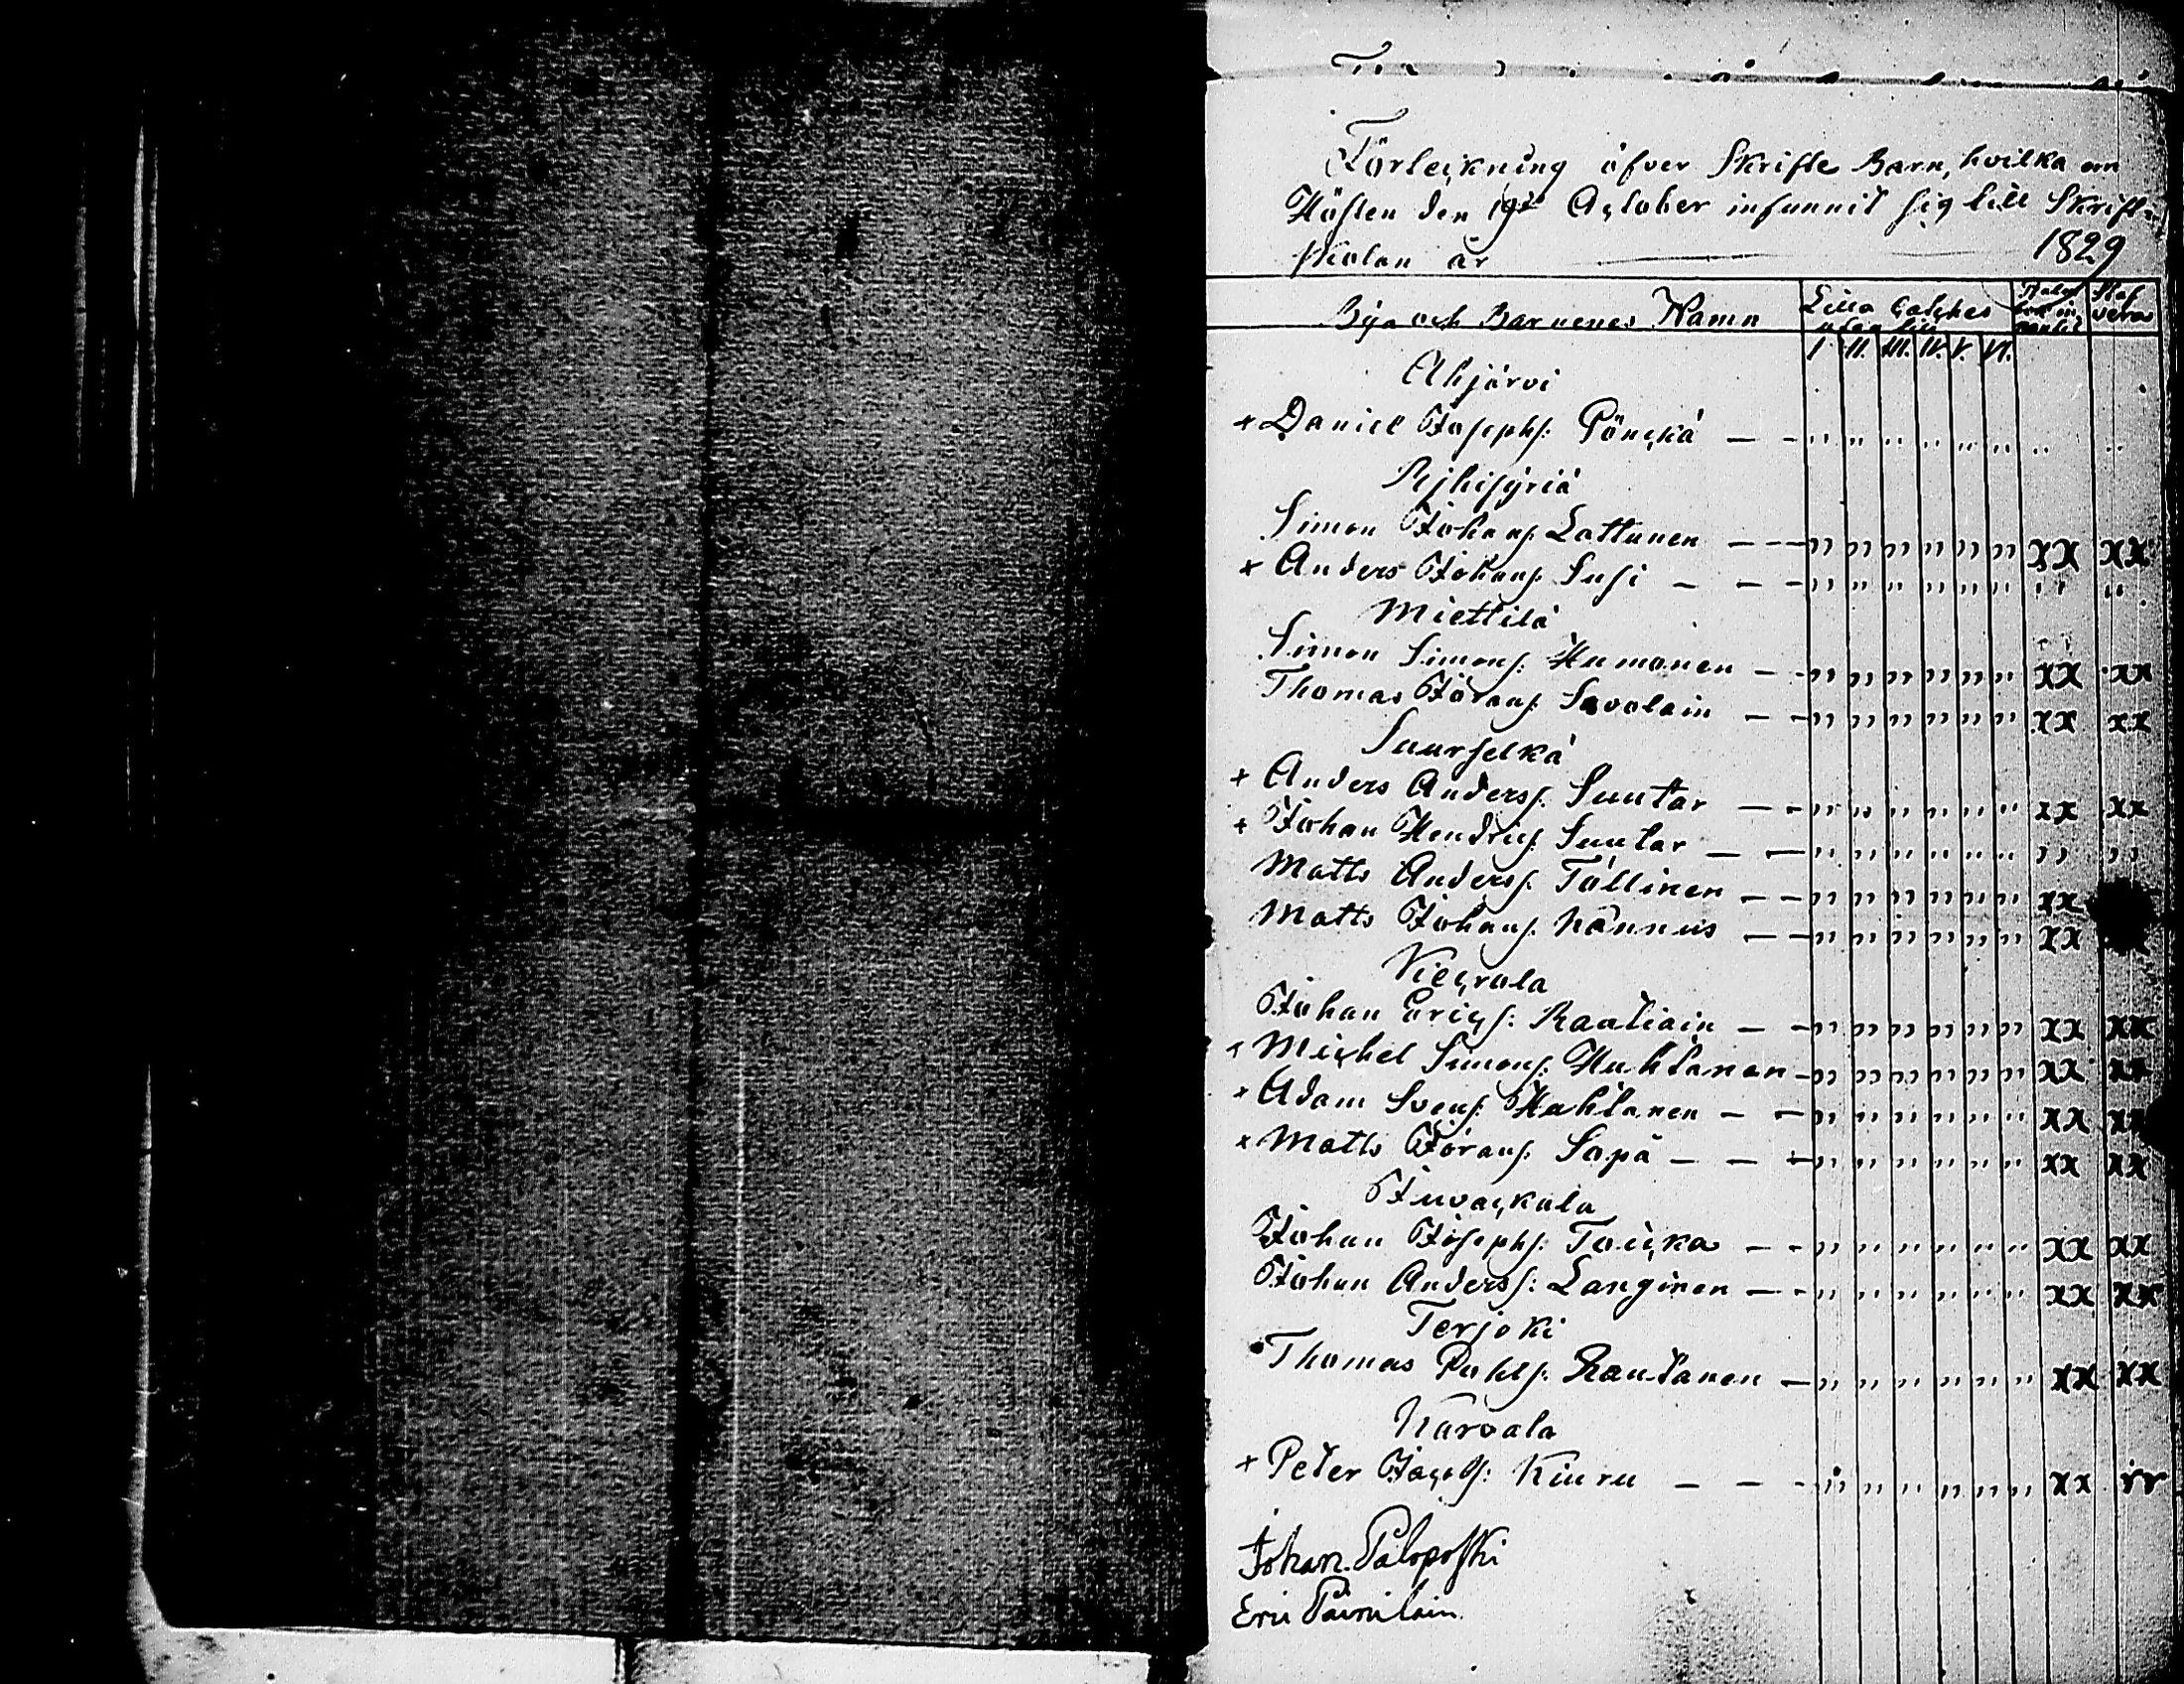 Förteckning öfver Skrifte Barn, hvilka om
Hösten den 19de October infunnit sig till Skrift-
skolan år 1829
Bya och Barnenes Namn Lilla Catches Staf vera
utan till
I. II. III. IV. V. VI.
Ahjärvi
+ Daniel Josephs: Pönckä — - " " " " " " " "
Rjhisyriä
Simon Johans: Lattunen — - - " " " " " " XX XX
+ Anders Johans: Susi — — - " " " " " " " "
Miettilä
Simon Simons: Humonen — - " " " " " " XX XX
Thomas Görans: Savolain — - " " " " " " XX XX
Suurselkä
+ Anders Anders: Suutar — - " " " " " " XX XX
+ Johan Hendrics: Suutar — — " " " " " " " "
Matts Anders: Tällinen — - " " " " " " XX
Matts Johans: Nännus — — " " " " " " XX
Kiecrola
Johan Erics: Rautiain — - " " " " " " XX XX
+ Michel Simons: Huhtanen - " " " " " " XX XX
+ Adam Svens: Huhtanen — - " " " " " " XX XX
+ Matts Görans: Sopa — — + " " " " " " XX XX
Juvackala
Johan Josephs: Toicka — - " " " " " " XX XX
Johan Anders: Langinen — - " " " " " " XX XX
Terjoki
Thomas Pahls: Rautanen — " " " " " " XX XX
Närvala
+ Peter Jacobs: Kiuru — — - " " " " " " XX XX
Johan Paloposki
Eric Parnilain